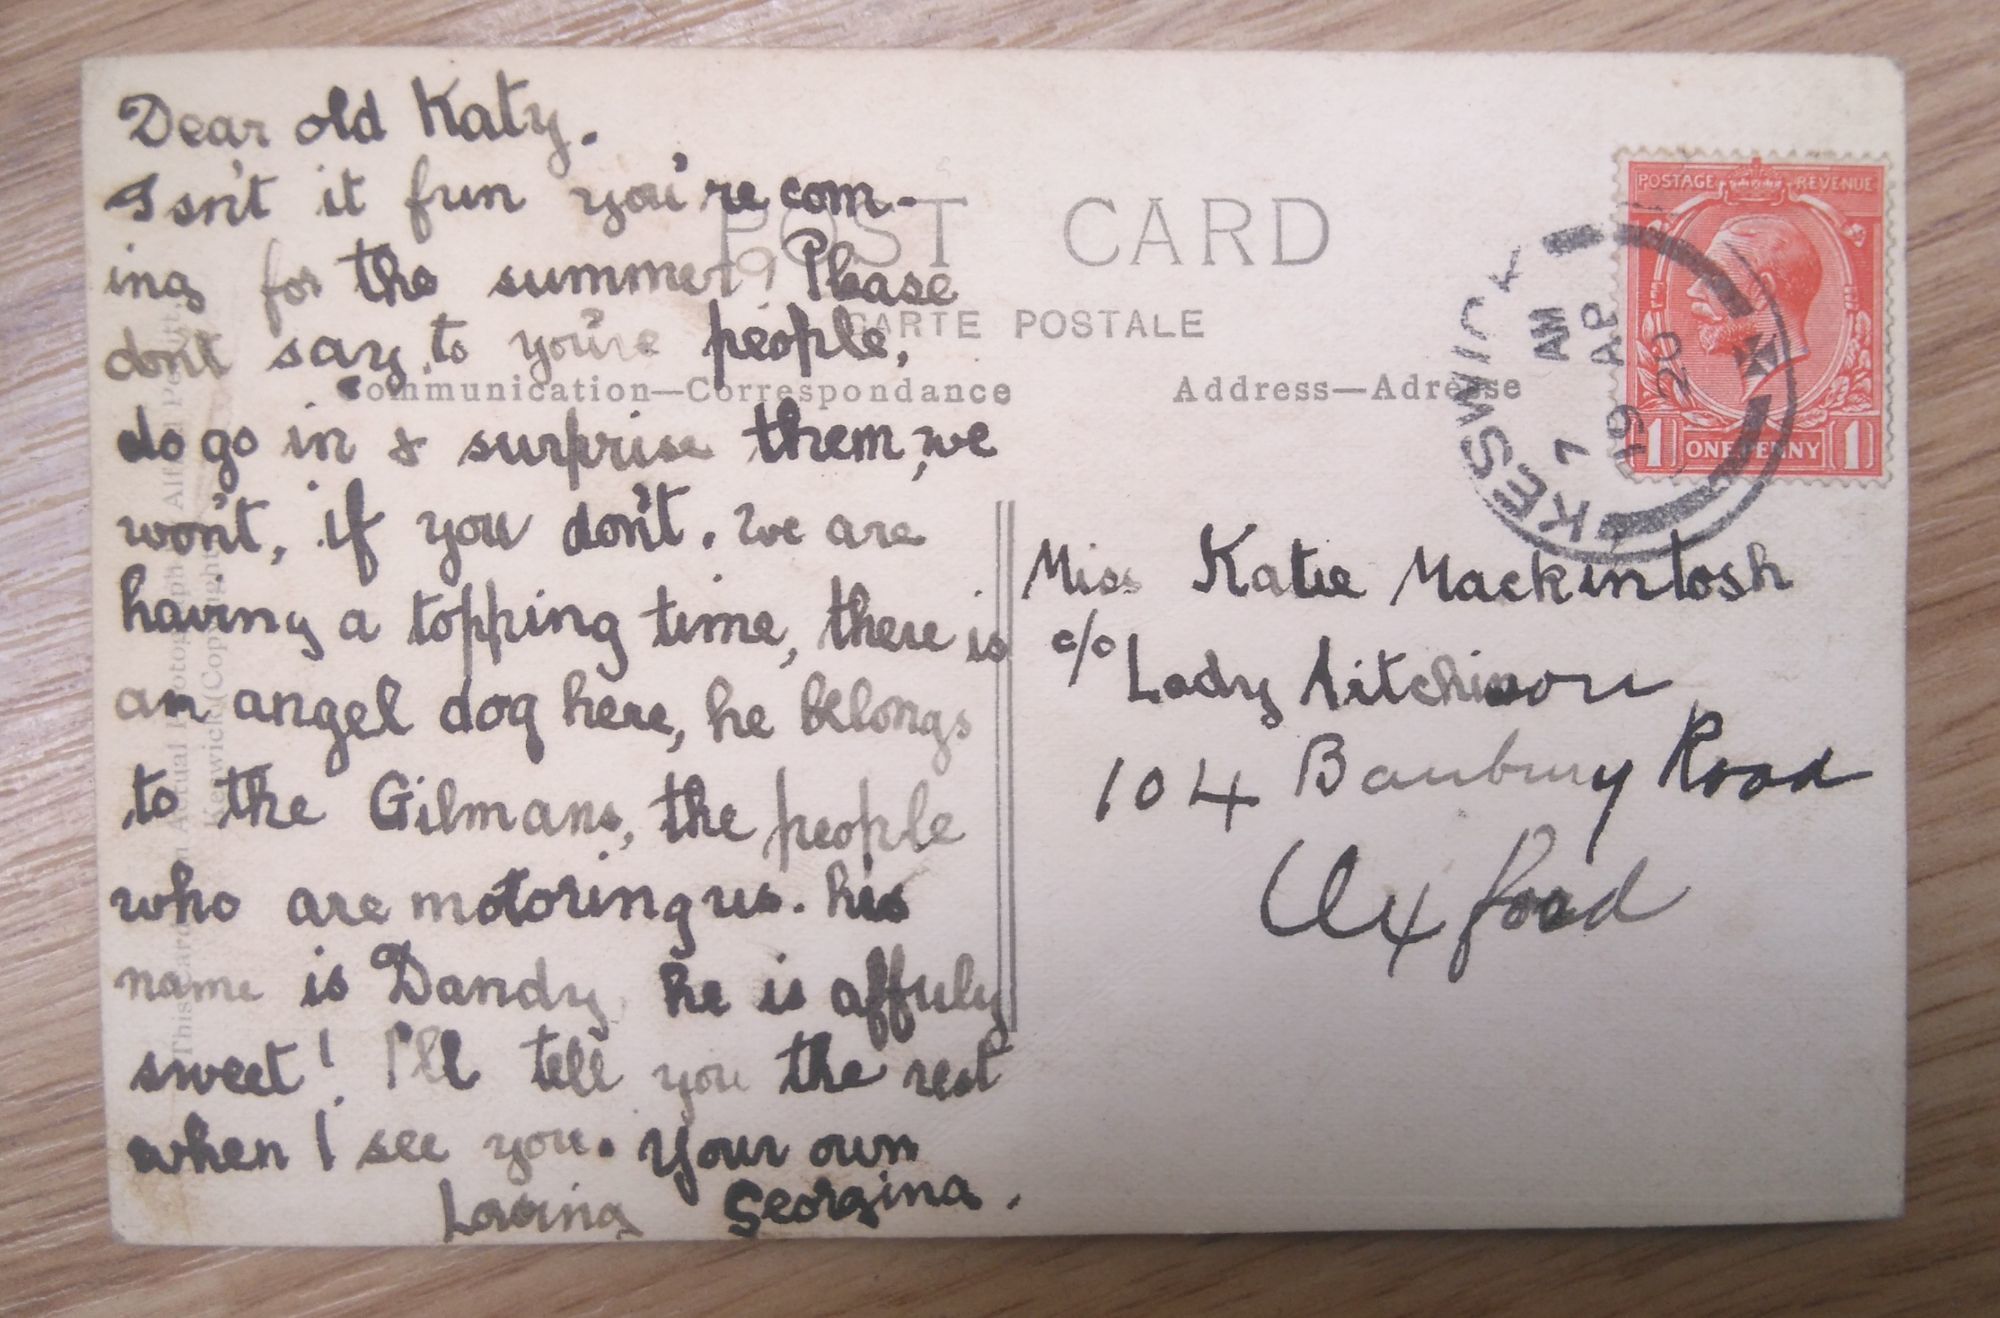 Dear old Katy.
Isn't it fun you're com-
ing for the summer? Please
don't say to you're people,
do go in & surprise them, we
won't, if you don't. We are
having a topping time, there is
an angel dog here, he belongs
to the Gilmans, the people
who are motoring us. his
name is Dandy he is affuly
sweet! I'll tell you the rest
when I see you. Your own
Loving Georgina.
POST CARD
CARTE POSTALE
Communication—Correspondance
Address—Adresse
Miss Katie Mackintosh
c/o Lady Aitchison
104 Banbury Road
Oxford
KESWICK
7 AM
19 AP
20
POSTAGE REVENUE
1 ONE PENNY 1
This card is an Actual Photograph Alfred Pettitt,
Keswick (Copyright)